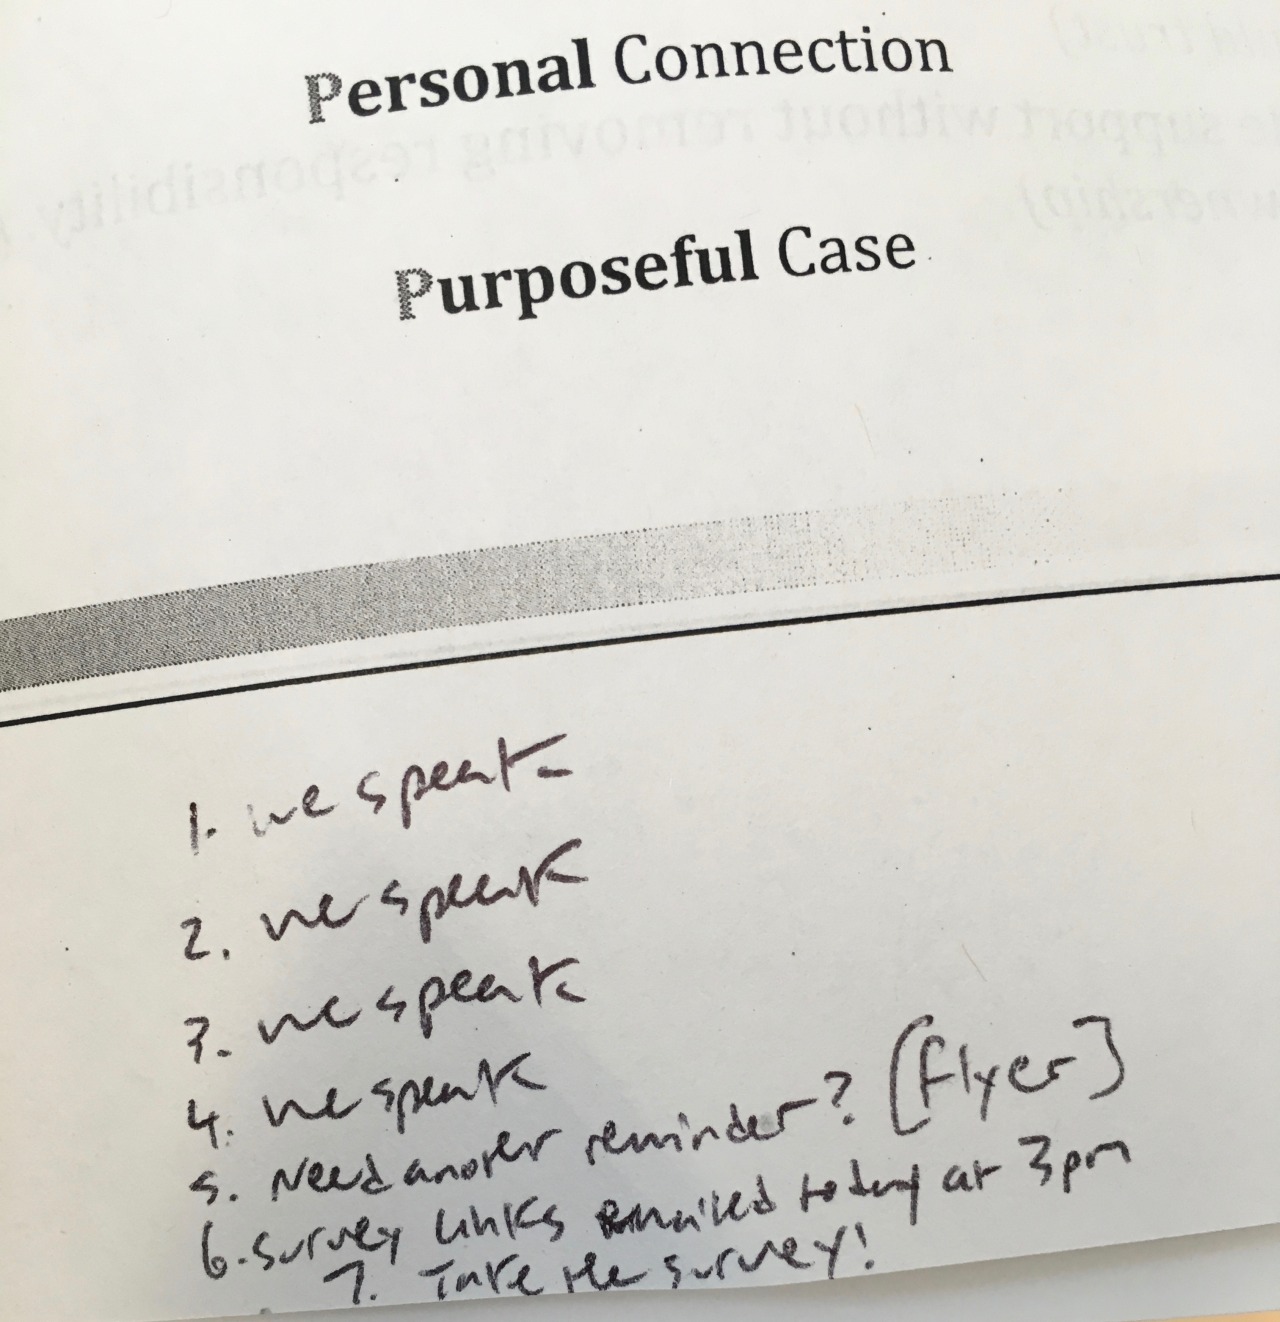 Personal Connection
Purposeful Case
1. we speak
2. we speak
3. we speak
4. we speak
5. Need another reminder? [flyer]
6. survey links emailed today at 3pm
7. Take the survey!